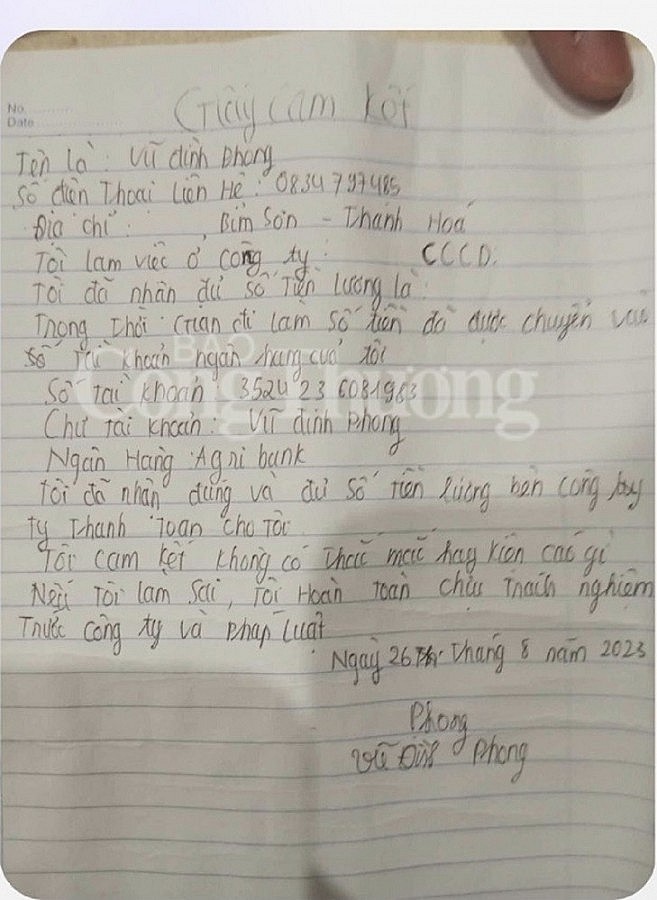 No.
Date
Giấy cam kết
Tên là : Vũ đình Phong
Số điện Thoại Liên Hệ : 0834797485
Địa chỉ : , Bỉm Sơn - Thanh Hoá
Tôi làm việc ở công ty : CCCD.
Tôi đã nhận đủ số tiền lương là :
Trong thời gian đi làm số tiền đã được chuyển vào
số tài khoản ngân hàng của tôi
BÁO
Công Thương
Số tài khoản 3524236081963
Chủ tài khoản : Vũ đình Phong
Ngân Hàng : Agribank
Tôi đã nhận đúng và đủ số tiền lương bên công ty
ty Thanh toán cho tôi
Tôi cam kết không có thắc mắc hay kiện cáo gì
Nếu tôi làm sai, tôi Hoàn toàn chịu trách nghiệm
Trước công ty và Pháp luật
Ngày 26 Tháng 8 năm 2023
Phong
Vũ Đình Phong